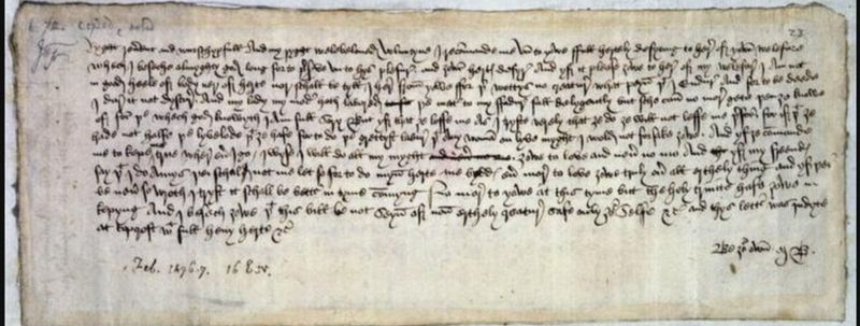 Ryght reverent and wurschypfull And my ryght welebeloved Voluntyne I recomande me vn to yowe full hertely desyring to here of yowr welefare
whech I beseche almyghty god long for to preserve vn to hys plesur and yowr hertys desyre And yf it please yowe to here of my welefare I am not
in good heele of body ner of herte nor schall be tyll I here from yowe For þer wottys no creature what peyn þt I endure And for to be deede
I dare it not dyscure And my lady my moder hath labored þe mater to my fadure full delygently but sche can no more gete þen ye knowe
of for þe whech god knowyth I am full sory But yf that ye loffe me as I tryste verely that ye do ye will not leffe me þerfor for if þt ye
hade not halfe þe lyvelode þt ye hafe for to do þe grettyst labure þt any woman on lyve myght I wold not forsake yowe And yf ye comande
me to kepe me true where ever I go I wyse I will do all my myght yowe to love and never no mo And yf my freendys
say þt I do amys þei schal not me let so for to do myn herte me byddys ever more to love yowe truly over all erthely thing and yf þei
be never so wroth I tryst it schall be better in tyme comyng No more to yowe at this tyme but the holy trinite hafe yowe in
kepyng And I besech yowe þt this bill be not seyn of non erthely creature safe only yowr selfe &c and thys letter was indyte
at Topcroft wt full hevy herte &c
Be yowr own M B.
Feb. 1476-7. 16 E. iv.